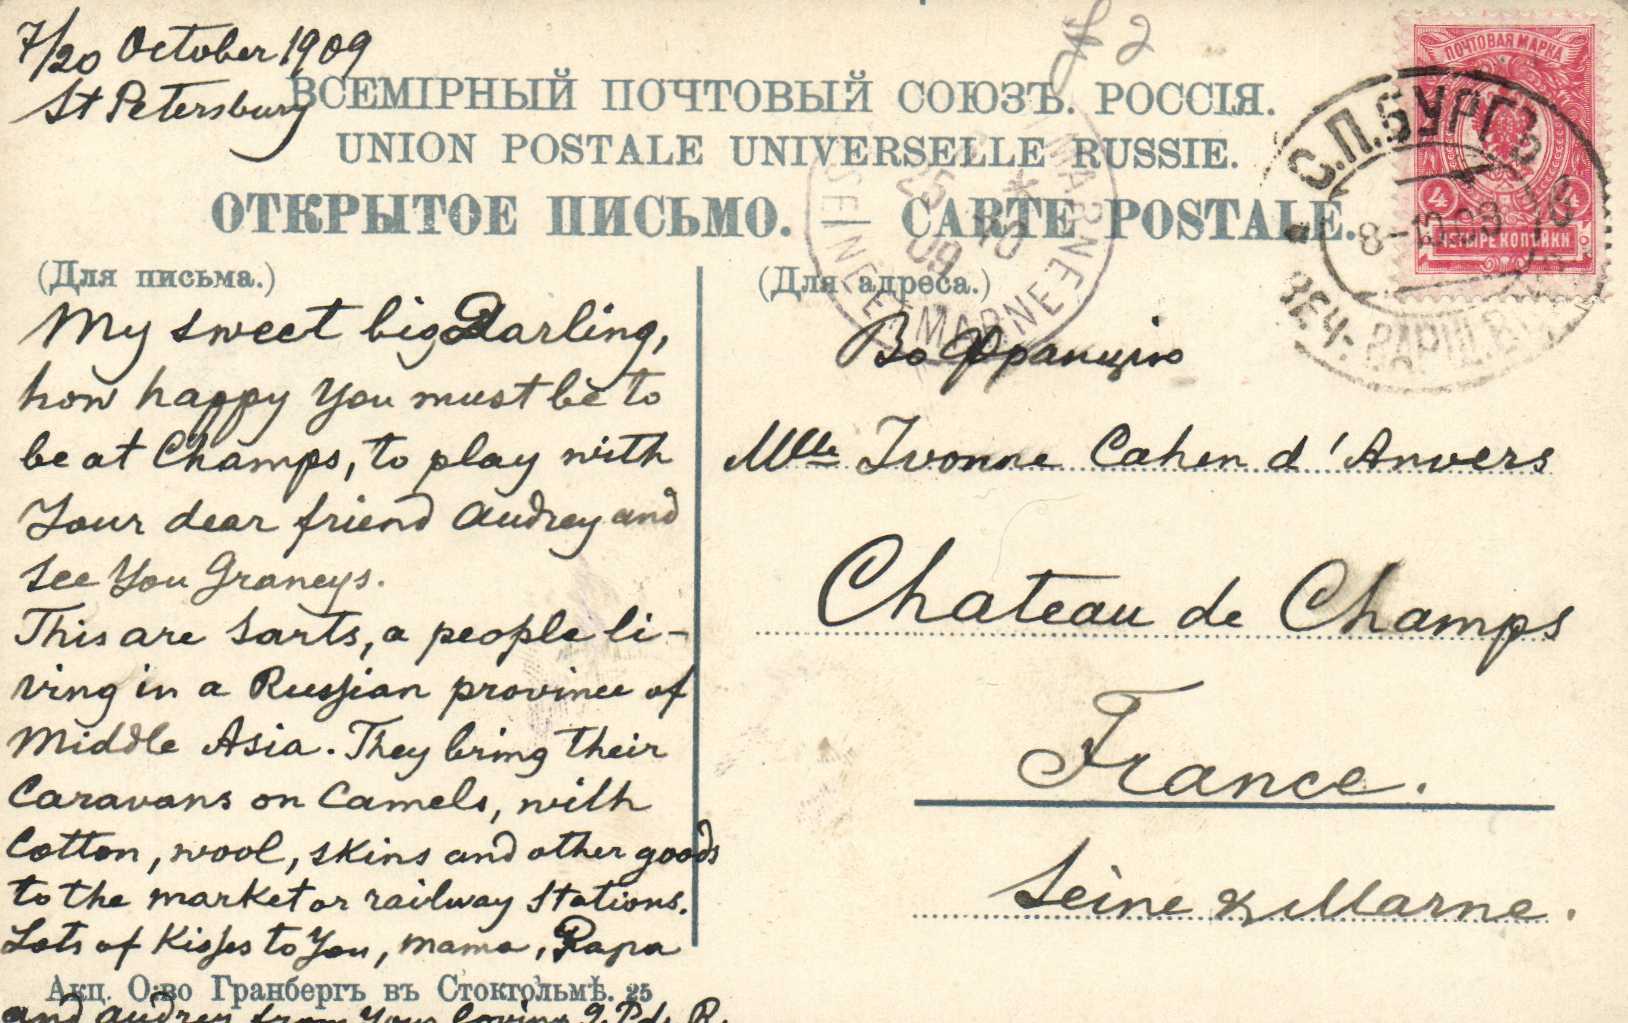 7/20 October 1909
St Petersburg
№ 2
ВСЕМІРНЫЙ ПОЧТОВЫЙ СОЮЗЪ. РОССІЯ.
UNION POSTALE UNIVERSELLE RUSSIE.
ОТКРЫТОЕ ПИСЬМО. CARTE POSTALE.
ПОЧТОВАЯ МАРКА
4 4
ЧЕТЫРЕ КОПѢЙКИ
С.П.БУРГЪ
8-10.09
ВЕЧ. ВАРШ. В
MARNE
25 10
09
SEINE ET MARNE
(Для письма.)
My sweet big Darling,
how happy You must be to
be at Champs, to play with
Your dear friend Audrey and
see You Graneys.
This are Sarts, a people li-
ving in a Russian province of
Middle Asia. They bring their
Caravans on Camels, with
Cotton, wool, skins and other goods
to the market or railway stations.
Lots of Kisses to You, mama, Papa
and Audrey from Your loving
(Для адреса.)
Во Францію
Mlle Ivonne Cahen d'Anvers
Chateau de Champs
France.
Seine & Marne.
Акц. О-во Гранбергъ въ Стокгольмѣ. 25